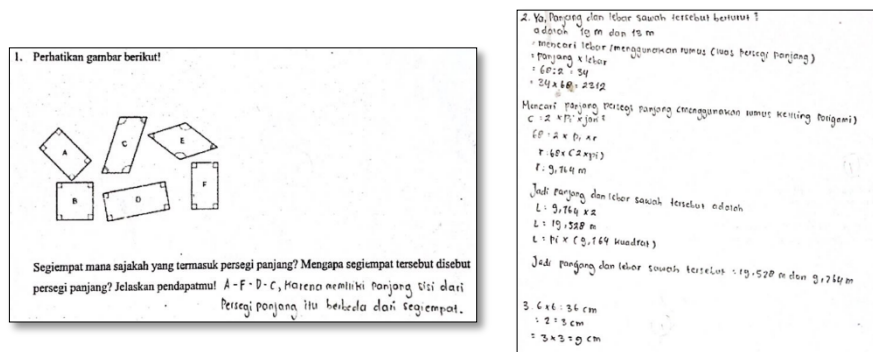 1. Perhatikan gambar berikut!
A
C
E
B
D
F
Segiempat mana sajakah yang termasuk persegi panjang? Mengapa segiempat tersebut disebut
persegi panjang? Jelaskan pendapatmu! A - F - D - C, Karena memiliki panjang sisi dari
Persegi panjang itu berbeda dari segiempat.
2. Ya, Panjang dan lebar sawah tersebut berturut ²
adalah 19 m dan 15 m
mencari lebar (menggunakan rumus (luas persegi panjang)
= panjang x lebar
= 68 : 2 = 34
= 34 x 68 = 2312
Mencari panjang persegi panjang (menggunakan rumus keliling
C = 2 x Pi x jari²
68 = 2 x Pi x r
r = 68 x (2 x pi)
r = 9,764 m
Jadi panjang dan lebar sawah tersebut adalah
L = 9,764 x 2
L = 19,528 m
L = Pi x (9,764 kuadrat)
Jadi panjang dan lebar sawah tersebut = 19,528 m dan 9,764 m
3. 6 x 6 = 36 cm
: 2 = 3 cm
= 3 x 3 = 9 cm